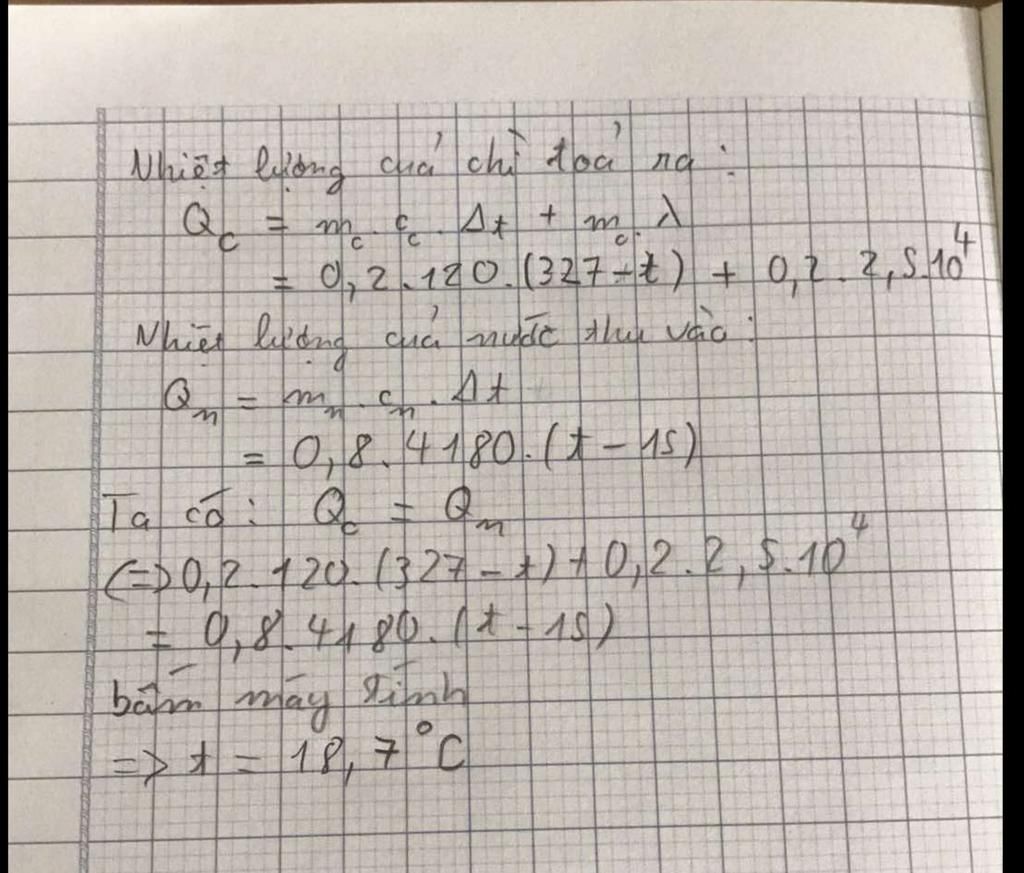 Nhiệt lượng củả chì toả ra :
Qc = mc . cc . Δt + mc . λ
= 0,2 . 120 . (327 - t) + 0,2 . 2,5.10⁴
Nhiệt lượng củả nước thu vào :
Qn = mn . cn . Δt
= 0,8 . 4180 . (t - 15)
Ta có : Qc = Qn
<=> 0,2 . 120 . (327 - t) + 0,2 . 2,5.10⁴
= 0,8 . 4180 . (t - 15)
bấm máy tính
=> t = 18,7°C